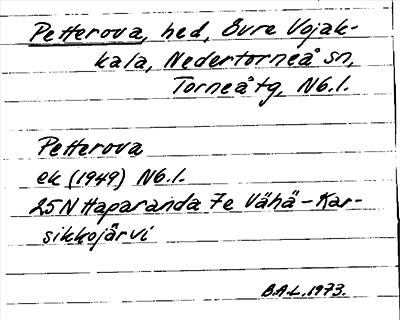 Petterova, hed, Övre Vojak-
kala, Nedertorneå sn,
Torneå tg, Nb.l.
Petterova
ek (1949) Nb.l.
25N Haparanda 7e Vähä-Kar-
sikkojärvi
B.A-L. 1973.